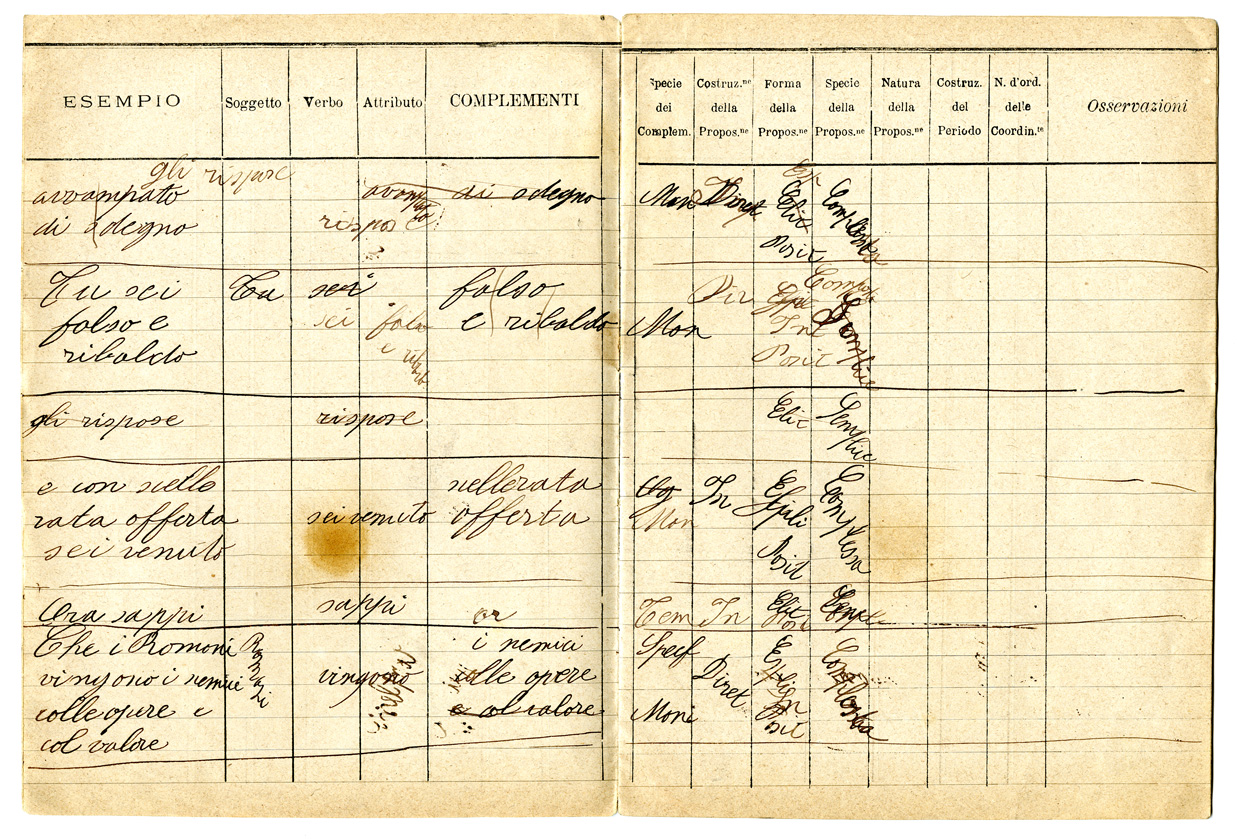 ESEMPIO Soggetto Verbo Attributo COMPLEMENTI
Specie dei Complem. Costruz.ne della Propos.ne Forma della Propos.ne Specie della Propos.ne Natura della Propos.ne Costruz. del Periodo N. d'ord. delle Coordin.te Osservazioni
gli rispose
avvampato di sdegno
di sdegno rispose
Mon Diret Elit Complessa
Posit
Tu sei Tu sei falso
falso e sei falso e ribaldo
ribaldo e
Dir
Mon Int Semplice
Posit
gli rispose rispose
Elit Semplice
e con scelle scellerata
rata offerta sei venuto offerta
sei venuto
In Espli Complessa
Mon
Posit
Ora sappi sappi or
Tem In Elit
Che i Romani Romani i nemici
vingono i nemici vingono colle opere
colle opere e e col valore
col valore
Specf Diret Espli Complessa
Moni In
Posit